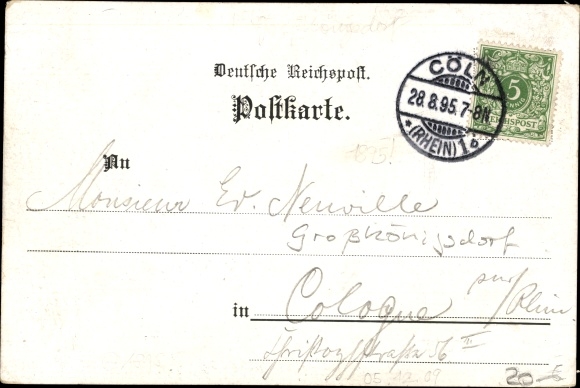 Deutsche Reichspost.
Postkarte.
CÖLN
28.8.95.7-8N.
*(RHEIN)1*
5
REICHSPOST
1895!
An
Monsieur Ed. Neuville
Großkönigsdorf
in Cologne sur/Rhin
straße 16 II
05.12.09
20